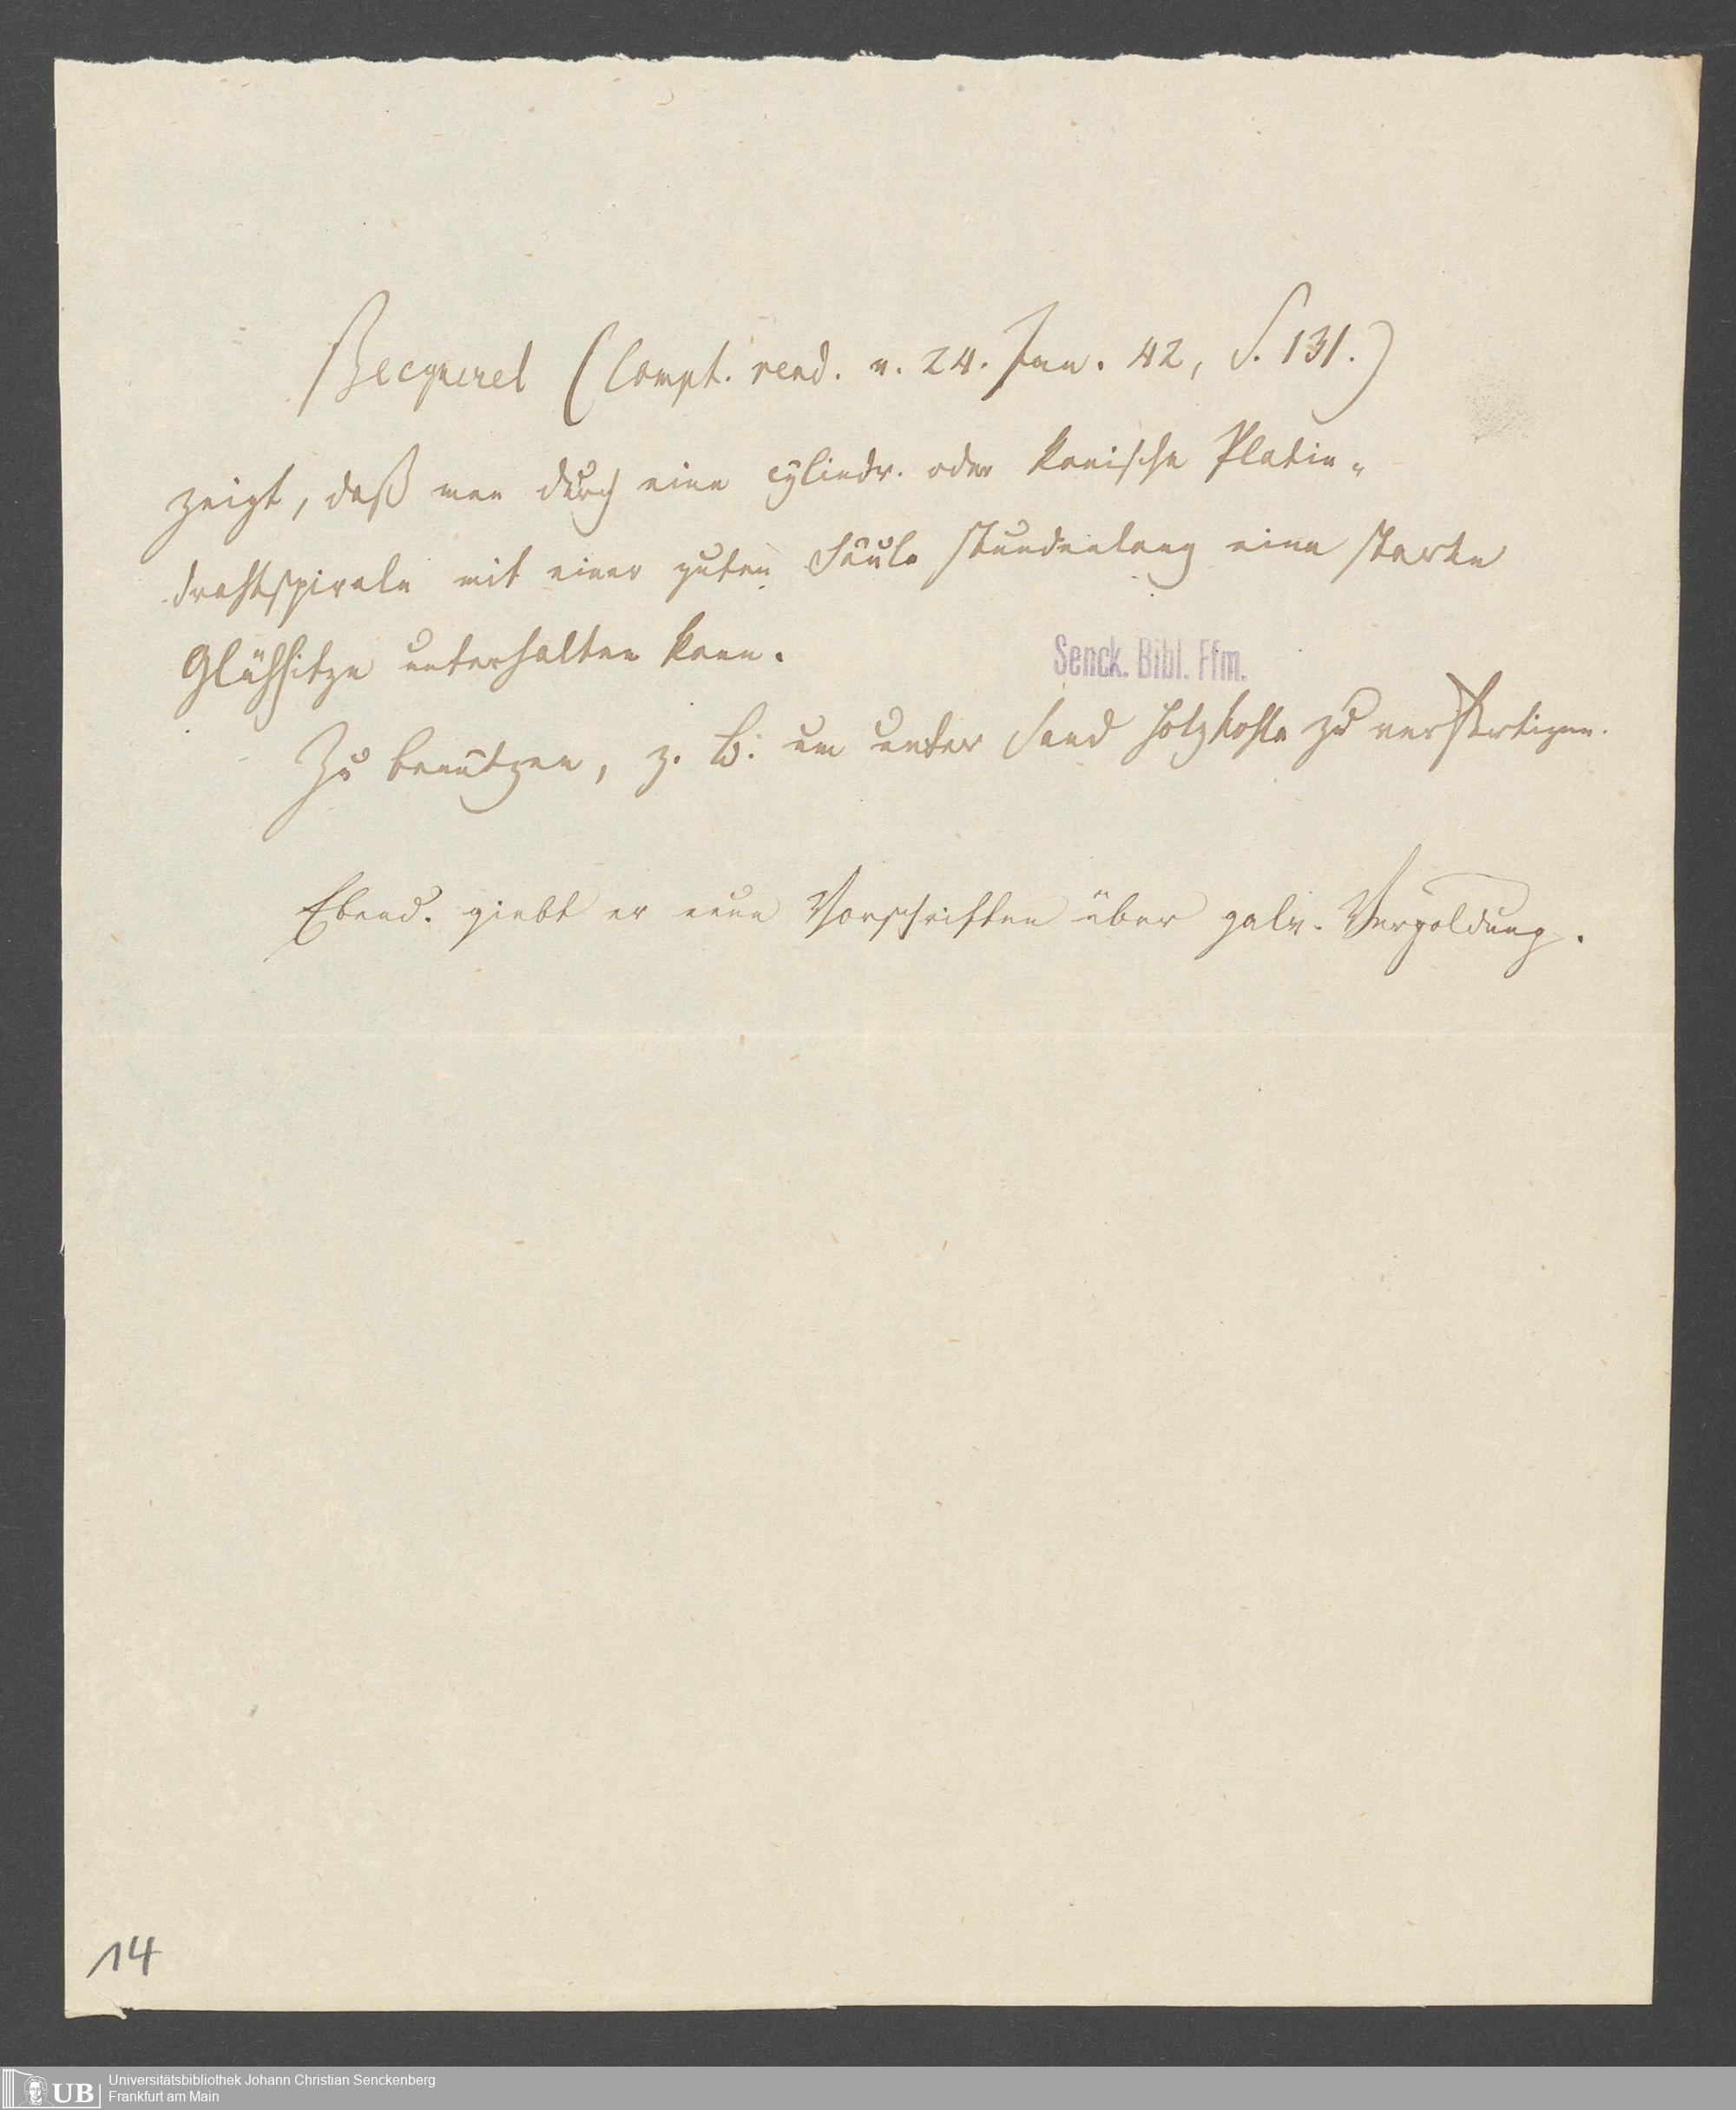 Becquerel (Compt. rend. v. 24. Jan. 42, S. 131.)
zeigt, daß man durch eine cylindr. oder konische Platin-
drahtspirale mit einer guten Säule stundenlang eine starke
Glühhitze unterhalten kann.
Senck. Bibl. Ffm.
Zu benützen, z. B. um unter Sand Holzkohle zu verfertigen.
Ebend. giebt er neue Vorschriften über galv. Vergoldung.
14
UB
Universitätsbibliothek Johann Christian Senckenberg
Frankfurt am Main